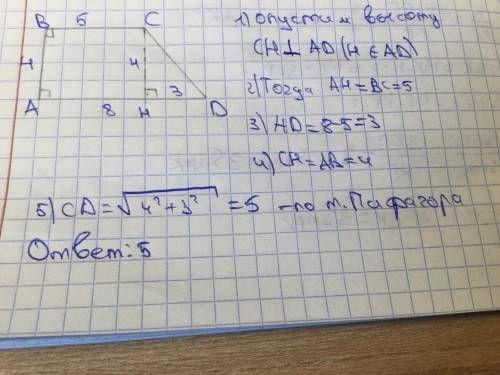 B 5 C
4 4 3
A 8 H D
1) Опустим высоту
CH⊥AD (H∈AD)
2) Тогда AH=BC=5
3) HD=8-5=3
4) CH=AB=4
5) CD=√4²+3² =5 -по т. Пифагора
Ответ: 5